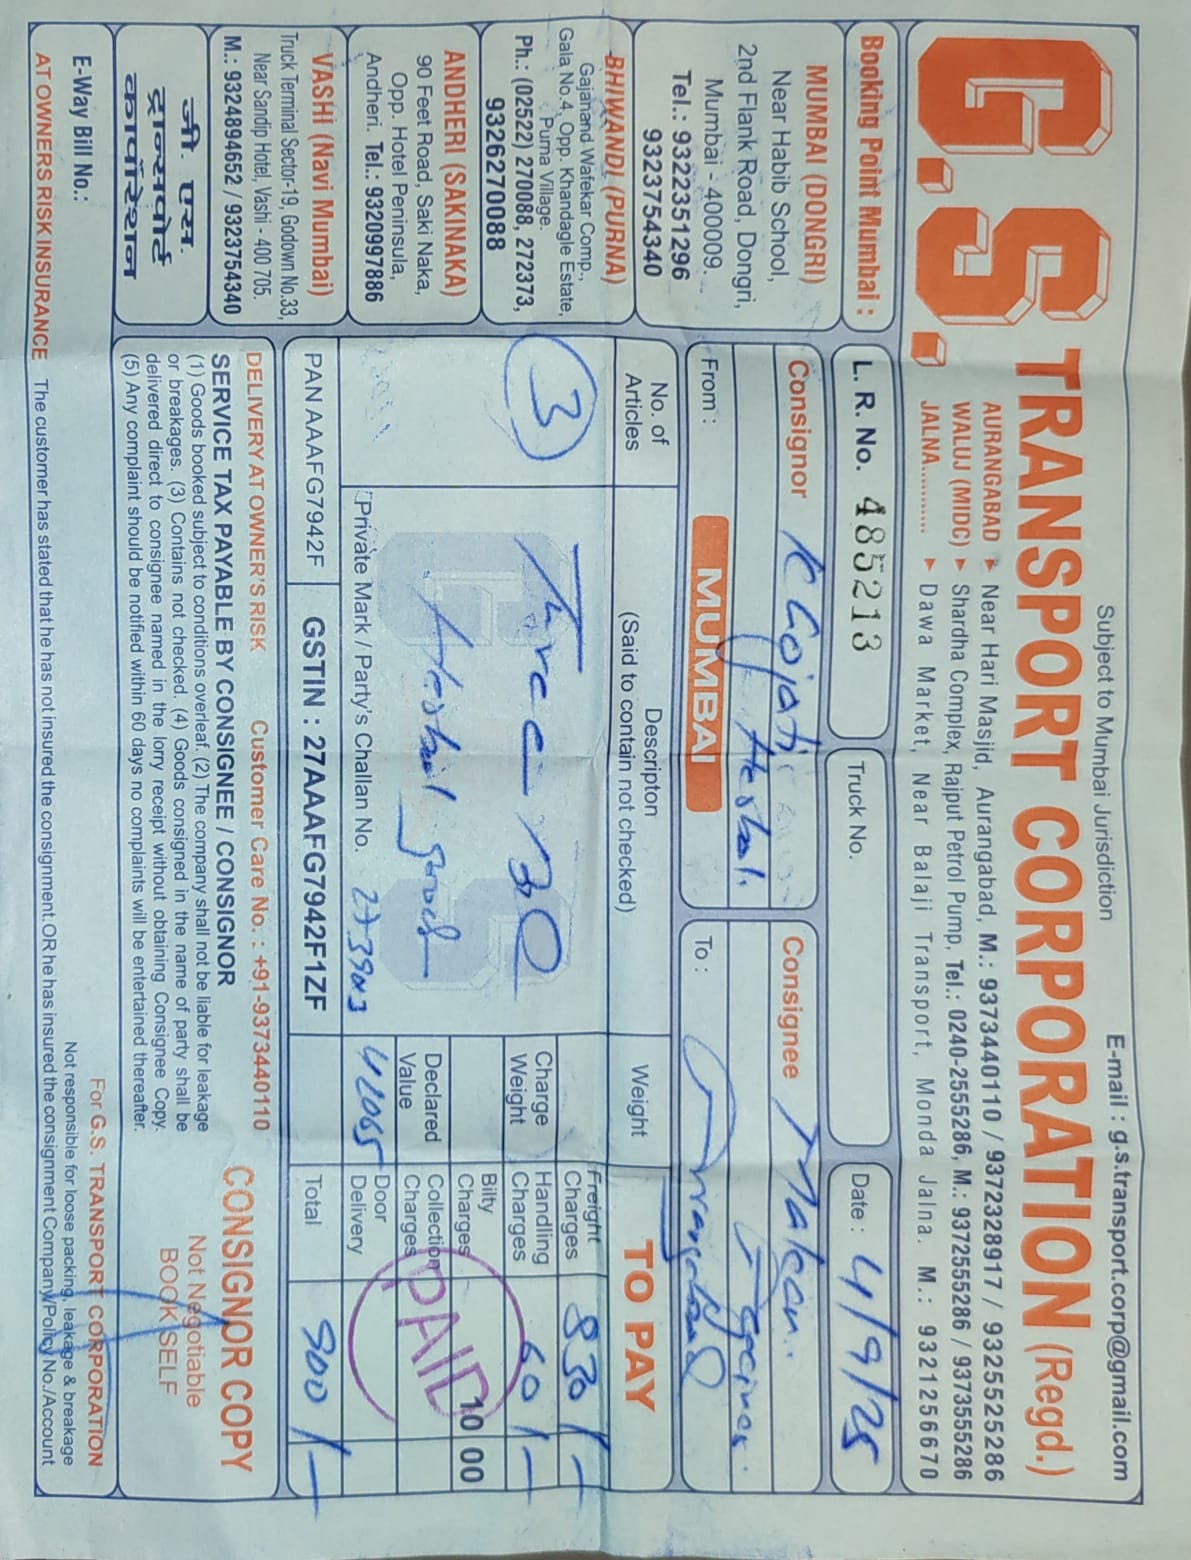 Subject to Mumbai Jurisdiction
E-mail : g.s.transport.corp@gmail.com
G.S. TRANSPORT CORPORATION (Regd.)
AURANGABAD ▸ Near Hari Masjid, Aurangabad, M.: 9373440110 / 9372328917 / 9325525286
WALUJ (MIDC) ▸ Shardha Complex, Rajput Petrol Pump, Tel.: 0240-2555286, M.: 9372555286 / 9373555286
JALNA............ ▸ Dawa Market, Near Balaji Transport, Monda Jalna. M.: 9321256670
Booking Point Mumbai :
L. R. No. 485213
Truck No.
Date : 4/9/25
MUMBAI (DONGRI)
Near Habib School,
2nd Flank Road, Dongri,
Mumbai - 400009.
Tel.: 9322351296
9323754340
BHIWANDI (PURNA)
Gajanand Wafekar Comp.,
Gala No.4, Opp. Khandagle Estate,
Purna Village.
Ph.: (02522) 270088, 272373,
9326270088
ANDHERI (SAKINAKA)
90 Feet Road, Saki Naka,
Opp. Hotel Peninsula,
Andheri. Tel.: 9320997886
VASHI (Navi Mumbai)
Truck Terminal Sector-19, Godown No.33,
Near Sandip Hotel, Vashi - 400 705.
M.: 9324894652 / 9323754340
जी. एस.
ट्रान्सपोर्ट
कार्पोरेशन
E-Way Bill No.:
Consignor Khojati
Herbal.
Consignee Malean.
From : MUMBAI
To :
No. of
Articles
Descripton
(Said to contain not checked)
Weight
TO PAY
3
Three
Herbal goods
Private Mark / Party's Challan No.
Charge
Weight
Declared
Value
Freight
Charges 830/-
Handling
Charges 60/-
Bilty
Charges 10 00
Collection
Charges
Door
Delivery
PAID
PAN AAAFG7942F
GSTIN : 27AAAFG7942F1ZF
Total 900/-
DELIVERY AT OWNER'S RISK Customer Care No. : +91-9373440110
SERVICE TAX PAYABLE BY CONSIGNEE / CONSIGNOR
(1) Goods booked subject to conditions overleaf. (2) The company shall not be liable for leakage
or breakages. (3) Contains not checked. (4) Goods consigned in the name of party shall be
delivered direct to consignee named in the lorry receipt without obtaining Consignee Copy.
(5) Any complaint should be notified within 60 days no complaints will be entertained thereafter.
CONSIGNOR COPY
Not Negotiable
BOOK SELF
For G.S. TRANSPORT CORPORATION
Not responsible for loose packing, leakage & breakage
AT OWNERS RISK INSURANCE The customer has stated that he has not insured the consignment OR he has insured the consignment Company/Policy No./Account